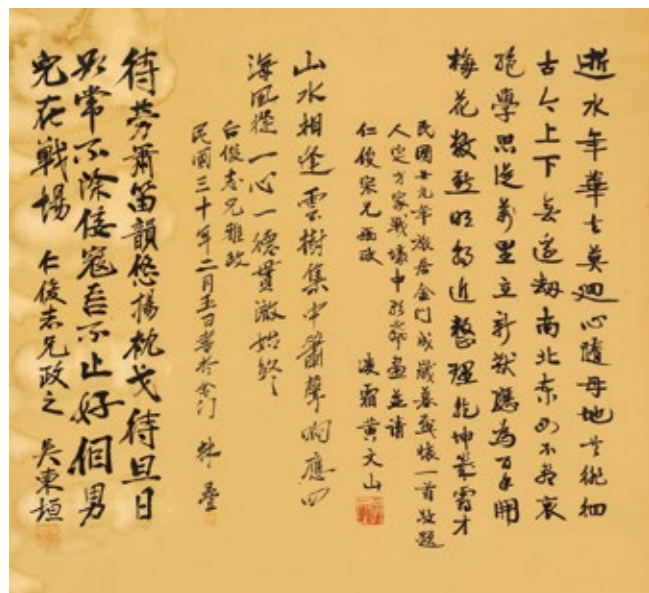 逝水年華去莫迴心隨母地共徘徊
古今上下無遺劫南北東西不盡哀
絕學思從立新猷應為百年開
梅花數點明朝近整理乾坤霸才
民國廿九年旅居金门成歲暮感懷一首敬題
人定方家戰壕中並請
仁俊宗兄政 凌霜黃文山
山水相逢雲樹集中簫聲响應四
海風從一心一德貫澈始終
台俊志兄雅政
民國三十年二月五日書於金门 林疊
待勞蕭笛韻悠揚枕戈待旦日
常不除倭寇吾不止好個男
兒在戰場 仁俊志兄政之 吳東垣